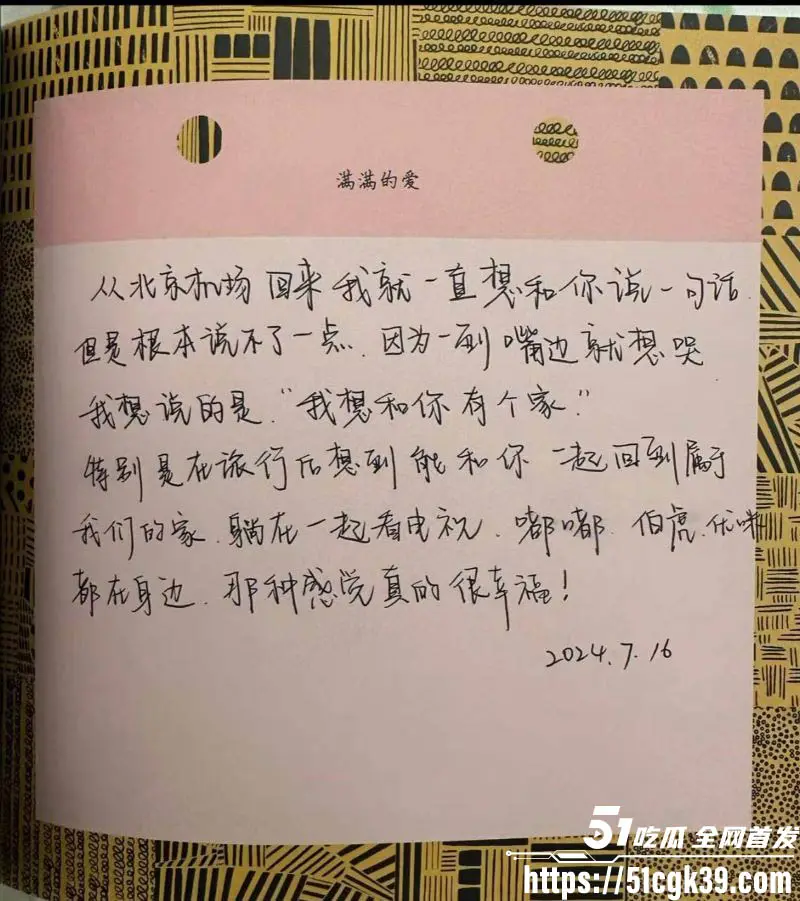 满满的爱
从北京机场回来我就一直想和你说一句话.
但是根本说不了一点.因为一到嘴边就想哭
我想说的是."我想和你有个家."
特别是在旅行后想到能和你一起回到属于
我们的家.躺在一起看电视.嘟嘟.伯虎.优咪
都在身边.那种感觉真的很幸福!
2024.7.16
51吃瓜 全网首发
https://51cgk39.com